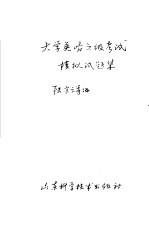 大学英语六级考试
模拟试题集
山东科学技术出版社